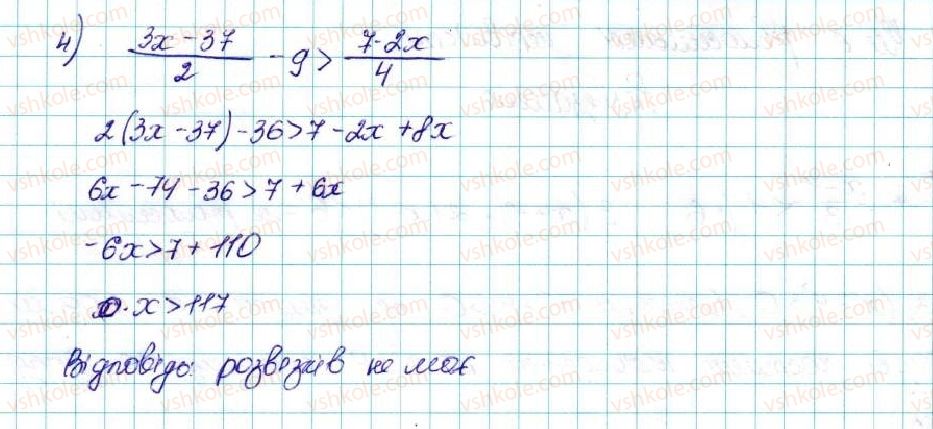 4) (3x - 37)/2 - 9 > (7 - 2x)/4
2(3x - 37) - 36 > 7 - 2x + 8x
6x - 74 - 36 > 7 + 6x
- 6x > 7 + 110
0 · x > 117
Відповідь: розвязків не має